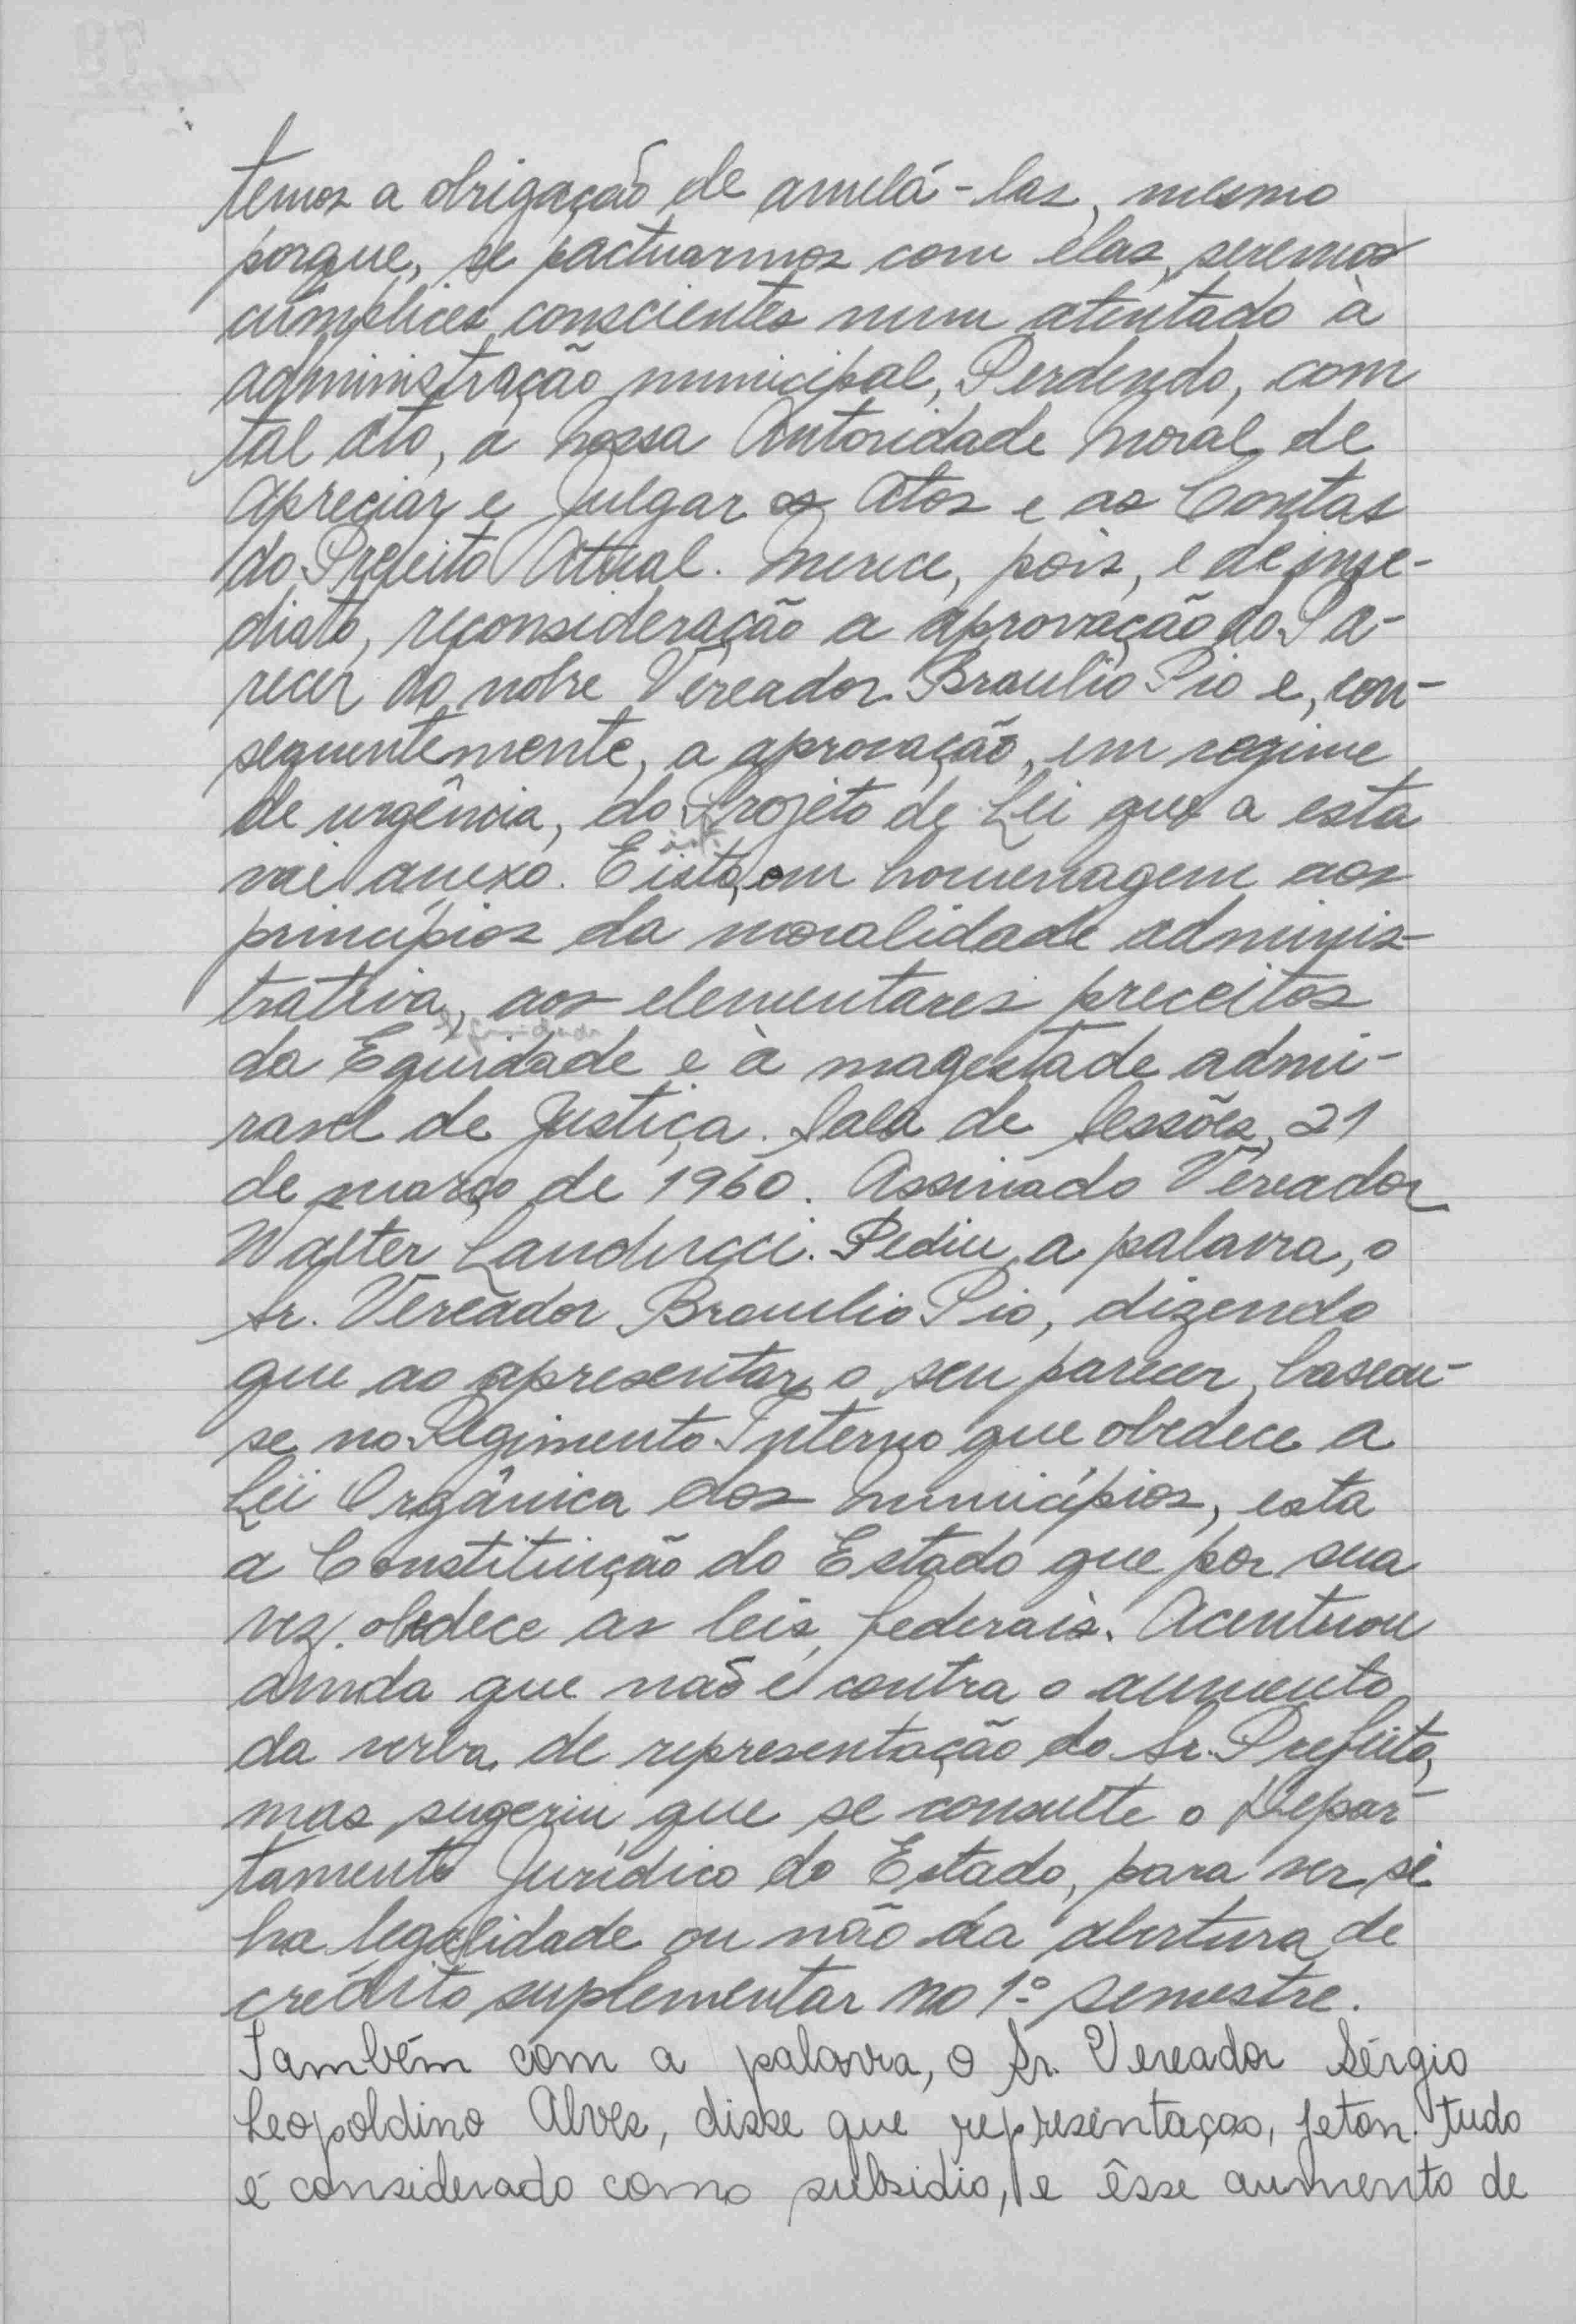 temos a obrigação de anulá-las, mesmo
porque, se pactuarmos com elas, seremos
cúmplices conscientes num atentado à
administração municipal, Perdendo, com
tal ato, a nossa Autoridade Moral de
Apreciar e Julgar os Atos e as Contas
do Prefeito Atual. Merece, pois, e de ime-
diato, reconsideração a aprovação do Pa-
recer do nobre Vereador Braulio Pio e, con-
sequentemente, a aprovação, em regime
de urgência, do Projeto de Lei que a esta
vai anexo. E isto, em homenagem aos
princípios da moralidade adminis-
trativa, aos elementares preceitos
da Equidade e à magestade admi-
ravel de Justiça. Sala de Sessões, 21
de março de 1960. Assinado Vereador
Walter Landucci. Pediu a palavra, o
Sr. Vereador Braulio Pio, dizendo
que ao apresentar o seu parecer, baseou-
se no Regimento Interno que obedece a
Lei Orgânica dos Municípios, esta
a Constituição do Estado que por sua
vez. obedece as leis federais. Acentuou
ainda que não é contra o aumento
da verba de representação do Sr. Prefeito,
mas sugeriu que se consulte o Depar-
tamento Jurídico do Estado, para ver si
ha legalidade ou não da abertura de
crédito suplementar no 1º semestre.
Também com a palavra, o Sr. Vereador Sérgio
Leopoldino Alves, disse que representaçao, jeton. tudo
é considerado como subsidio, e êsse aumento de